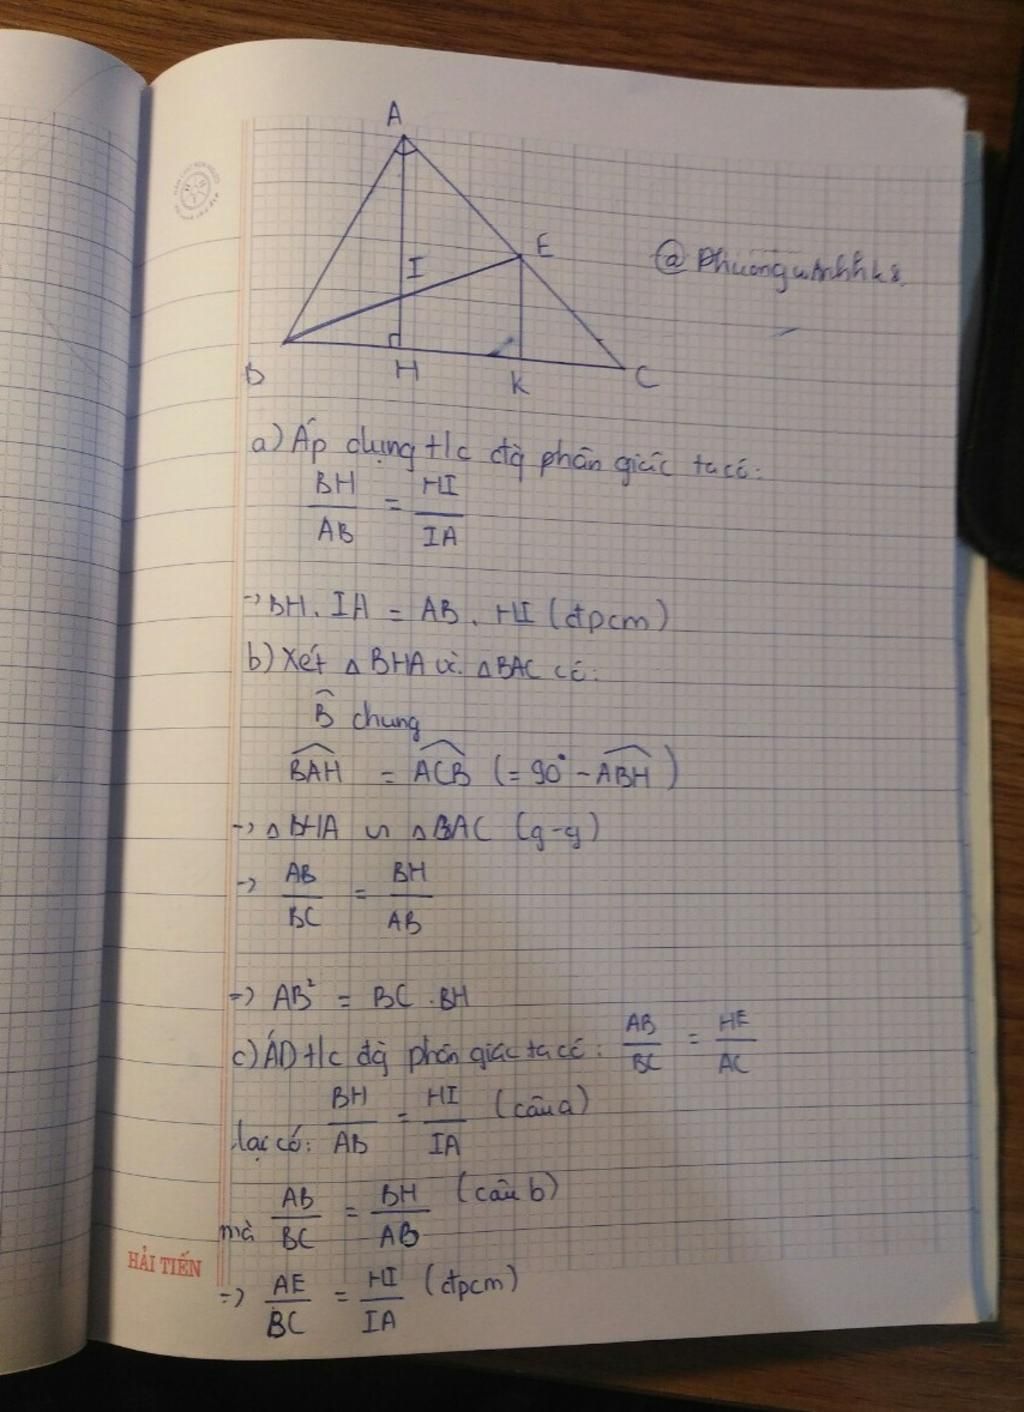 A
E
@ Phuonguanhhks.
I
B
H
K
C
a) Áp dụng t/c đg phân giác ta có:
BH/AB = HI/IA
-> BH. IA = AB. HI (đpcm)
b) Xét △BHA và △BAC có:
B̂ chung
BAH = ACB (= 90° - ABH)
-> △BHA ∽ △BAC (g-g)
-> AB/BC = BH/AB
=> AB² = BC . BH
c) ÁD t/c đg phân giác ta có: AB/BC = HE/AC
lại có: BH/AB = HI/IA (câu a)
mà AB/BC = BH/AB (câu b)
=> AE/BC = HI/IA (đpcm)
HẢI TIẾN